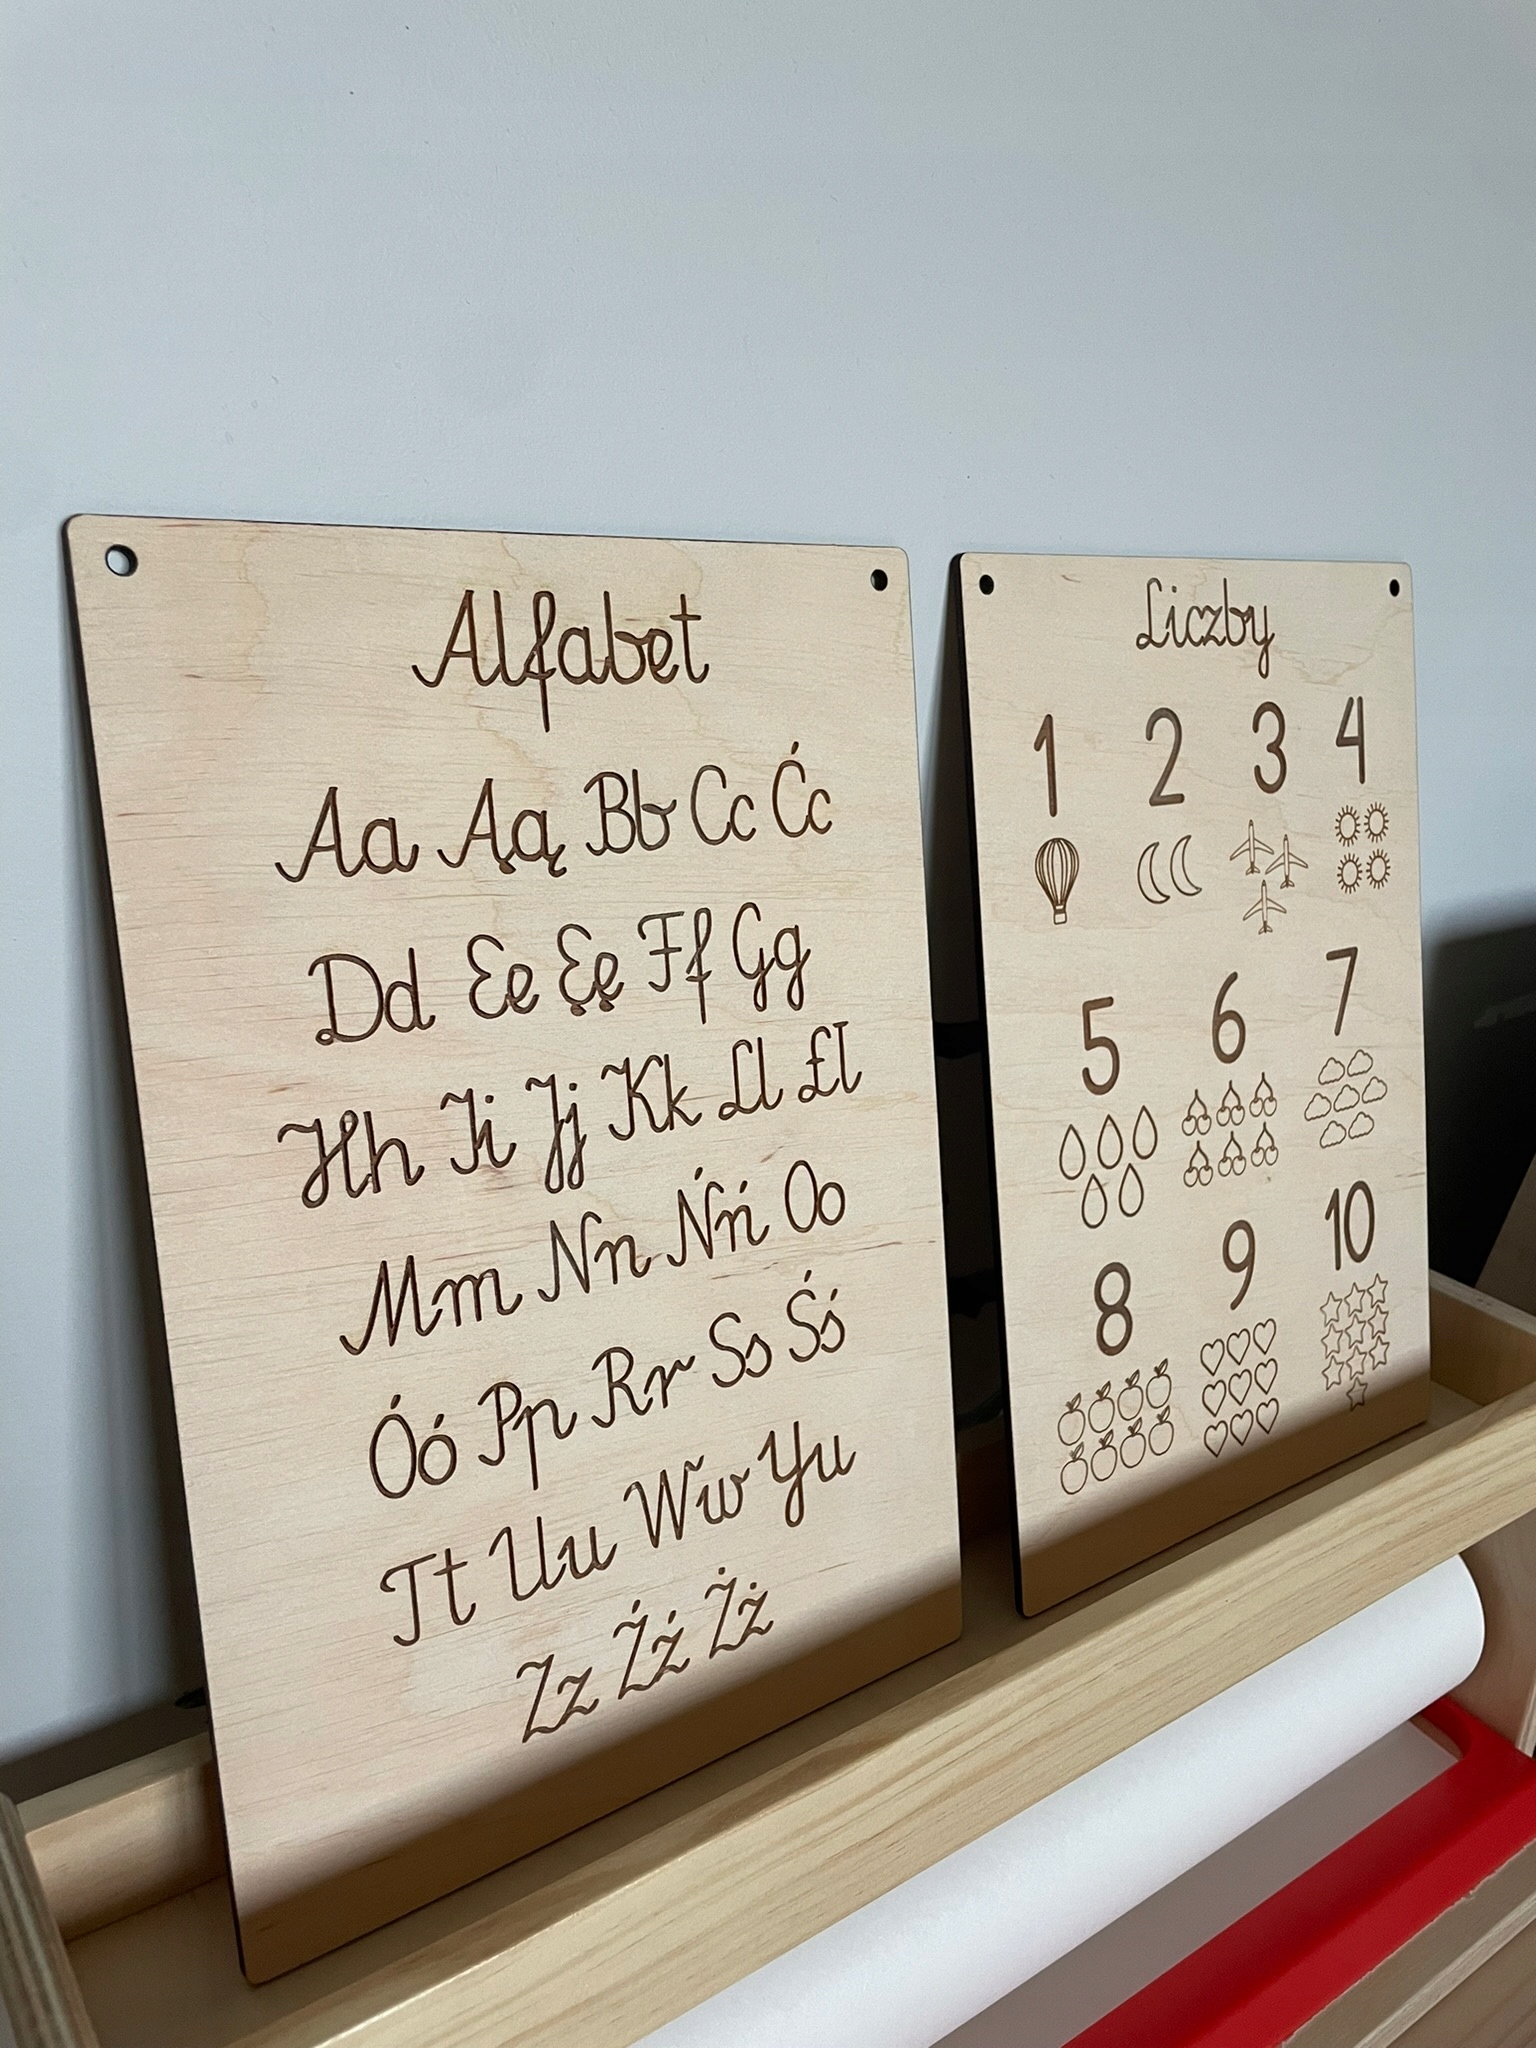 Alfabet
Aa Ąą Bb Cc Ćć
Dd Ee Ęę Ff Gg
Hh Ii Jj Kk Ll Łł
Mm Nn Ńń Oo
Óó Pp Rr Ss Śś
Tt Uu Ww Yy
Zz Źź Żż
Liczby
1 2 3 4
5 6 7
8 9 10